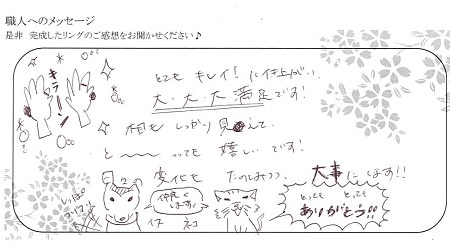 職人へのメッセージ
是非 完成したリングのご感想をお聞かせください♪
キラーン
とても キレイ！に仕上がり、
大・大・大満足です！
相も しっかり見えて、
と〜〜っても 嬉しいです！
日々の 変化も たのしみつつ、
大事にします!!
仲良く
します。
イヌ ネコ
とっても とっても
ありがとう!!